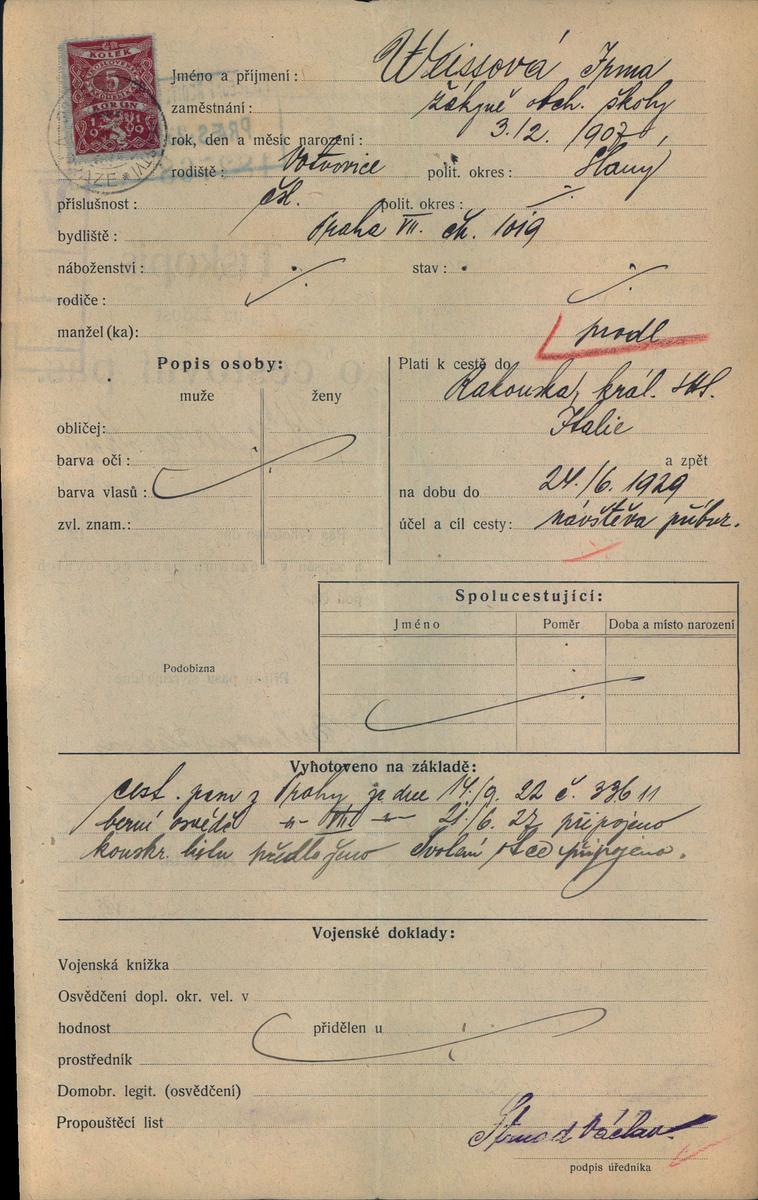 KOLEK
5
KORUN
1919
Jméno a příjmení: Weissová Irma
zaměstnání: žákyně obch. školy
rok, den a měsíc narození: 3.12. 1907
rodiště: Votvovice polit. okres: Slaný
příslušnost: čsl. polit. okres:
bydliště: Praha VII. čk. 1019
náboženství: stav:
rodiče:
manžel (ka): prodl
Popis osoby:
muže ženy
obličej:
barva očí:
barva vlasů:
zvl. znam.:
Platí k cestě do
Rakouska, král. SHS.
Italie
a zpět
na dobu do 24./6. 1929
účel a cíl cesty: návštěva příbuz.
Spolucestující:
Jméno Poměr Doba a místo narození
Podobizna
Vyhotoveno na základě:
cest. pasu z Prahy ze dne 14/9. 22 č. 33611
berní osvědč -"- VII -"- 21./6. 27 připojeno
konskr. listu předloženo Svolení otce připojeno.
Vojenské doklady:
Vojenská knížka
Osvědčení dopl. okr. vel. v
hodnost přidělen u
prostředník
Domobr. legit. (osvědčení)
Propouštěcí list
Strnad Václav
podpis úředníka